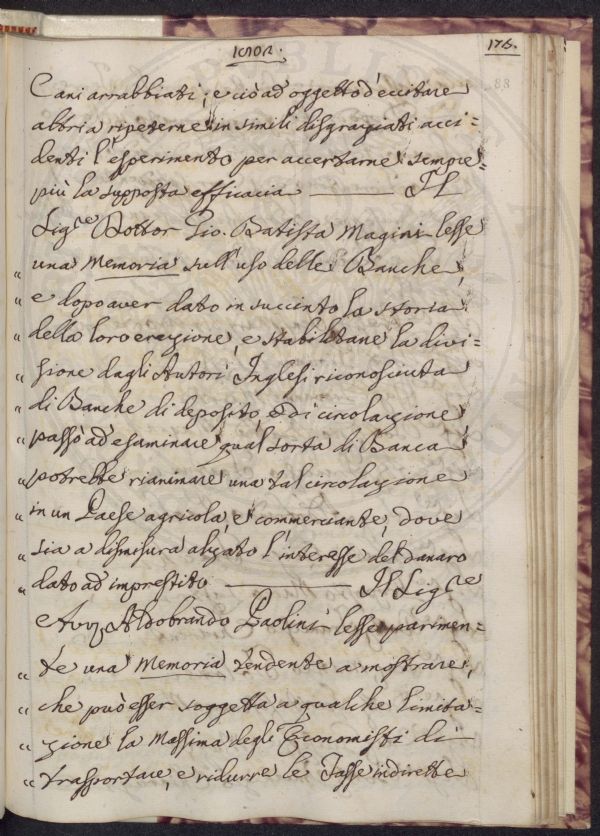 175.
88
Cani arrabbiati; e ciò ad oggetto d'eccitare
abbria ripeterne in simili disgraziati acci=
denti l'esperimento per accertarne sempre
più la supposta efficacia ——— Il
Sigre Dottor Gio. Batista Magini lesse
" una Memoria sull'uso delle Banche,
" e dopo aver dato in succinto la storia
" della loro erezione, e stabilitane la divi=
" sione dagli Autori Inglesi riconosciuta
" di Banche di deposito, e di circolazione
" passò ad esaminare qual sorta di Banca
" potrebbe rianimare una tal circolazione
" in un Paese agricola, e commerciante, dove
" sia a dismisura alzato l'interesse del danaro
" dato ad imprestito ——— Il Sigre
Avv. Aldobrando Paolini lesse parimen=
" te una Memoria tendente a mostrare,
" che può esser soggetta a qualche limita=
" zione la Massima degli Economisti di
" trasportare, e ridurre le Tasse indirette